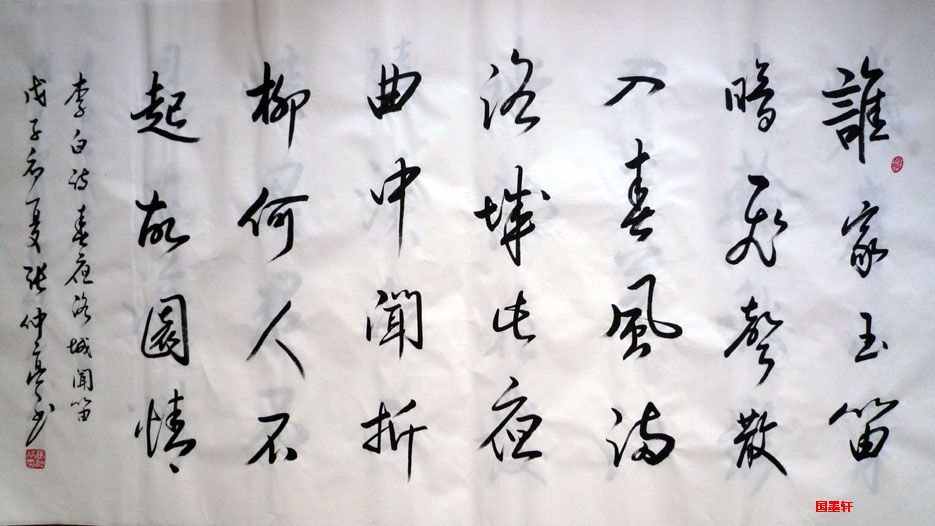 誰家玉笛
暗飛聲散
入春風满
洛城此夜
曲中聞折
柳何人不
起故園情
李白诗春夜洛城聞笛
戊子初夏张仲亭书
国墨轩